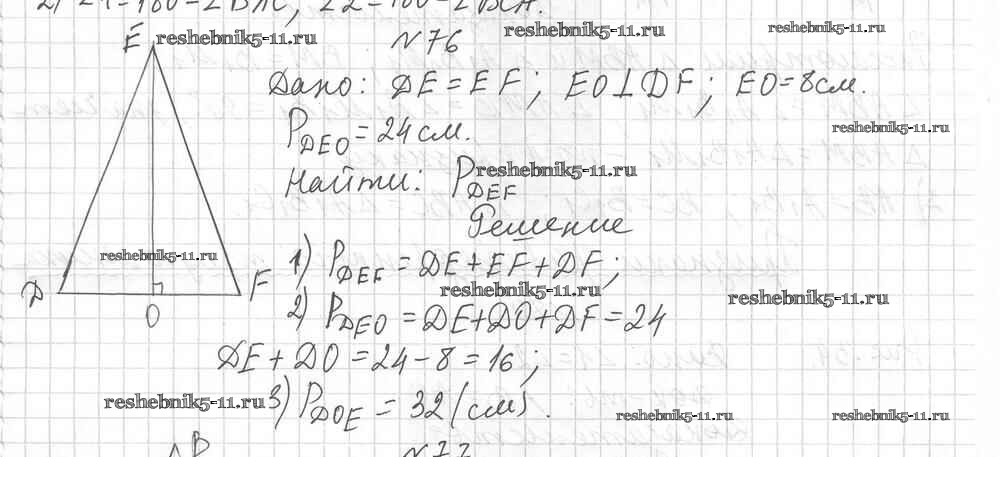 2) ∠1=180-∠BAC; ∠2=180-∠BCA.
E reshebnik5-11.ru N 76 reshebnik5-11.ru reshebnik5-11.ru
Дано: DE = EF; EO⊥DF; EO=8см.
P_DEO = 24 см. reshebnik5-11.ru
Найти: P_DEF reshebnik5-11.ru
Решение
reshebnik5-11.ru 1) P_DEF = DE+EF+DF;
D F reshebnik5-11.ru reshebnik5-11.ru
O 2) P_DEO = DE+DO+DF=24
DE+DO=24-8=16;
reshebnik5-11.ru 3) P_DOE = 32 (см).
reshebnik5-11.ru reshebnik5-11.ru
B N 77